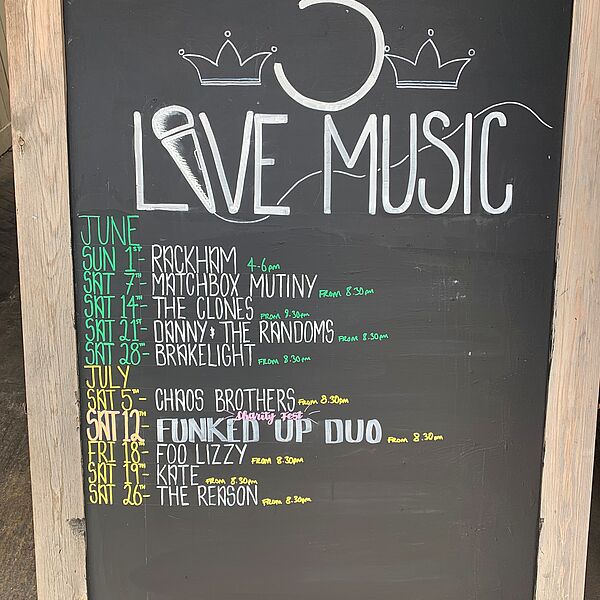 LIVE MUSIC
JUNE
SUN 1ST - RACKHAM 4-6pm
SAT 7TH - MATCHBOX MUTINY FROM 8.30pm
SAT 14TH - THE CLONES FROM 8.30pm
SAT 21ST - DANNY & THE RANDOMS FROM 8.30pm
SAT 28TH - BRAKELIGHT FROM 8.30pm
JULY
SAT 5TH - CHAOS BROTHERS FROM 8.30pm
Charity Fest
SAT 12TH - FUNKED UP DUO FROM 8.30pm
FRI 18TH - FOO LIZZY FROM 8.30pm
SAT 19TH - KATE FROM 8.30pm
SAT 26TH - THE REASON FROM 8.30pm